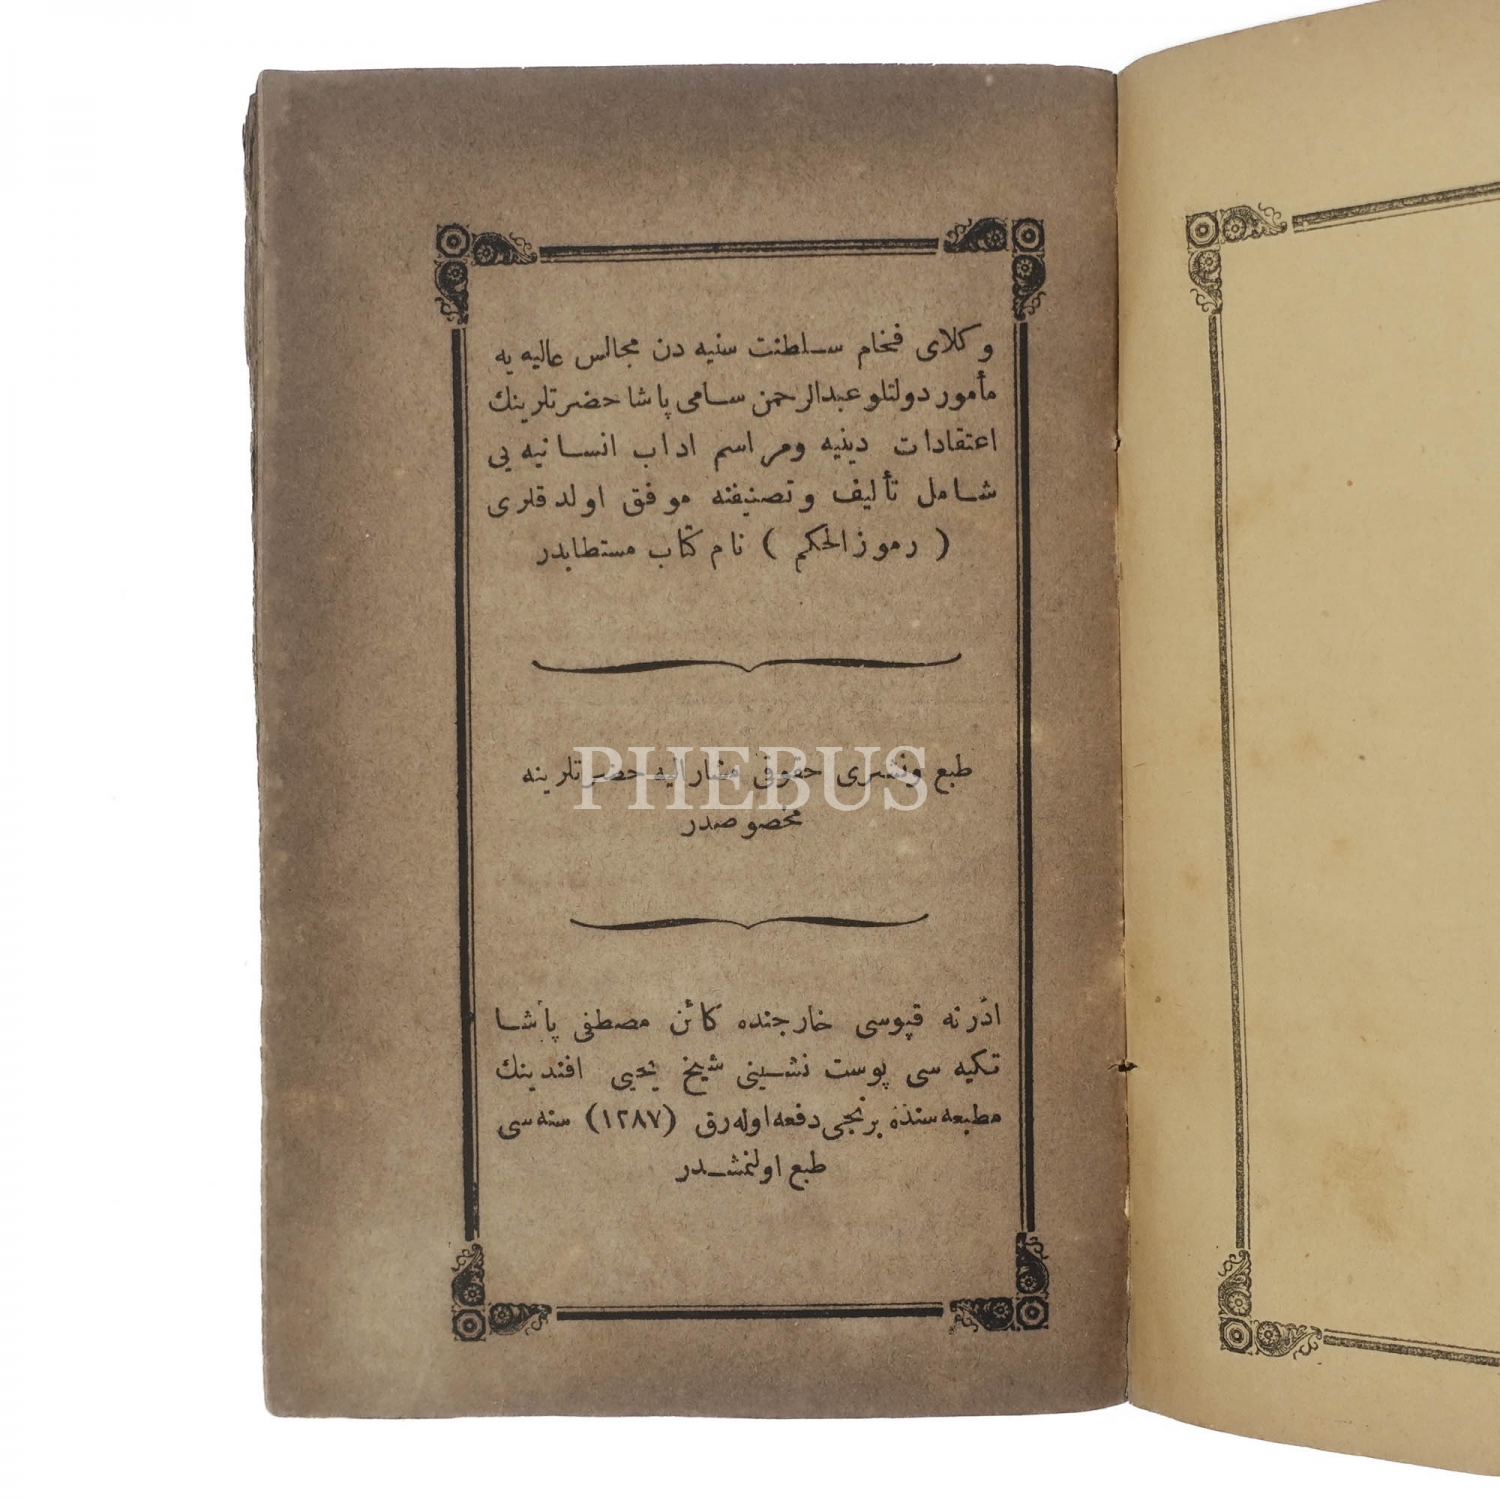 وكلای فخام سلطنت سنیه دن مجالس عالیه یه
مأمور دولتلو عبدالرحمن سامی پاشا حضرتلرینك
اعتقادات دینیه ومراسم اداب انسانیه یی
شامل تألیف وتصنیفنه موفق اولدقلری
( رموزالحكم ) نام كتاب مستطابدر
طبع ونشری حقوقی مشارالیه حضرتلرینه
مخصوصدر
PHEBUS
ادرنه قپوسی خارجنده كائن مصطفی پاشا
تكیه سی پوست نشینی شیخ یحیی افندینك
مطبعه سنده برنجی دفعه اوله رق (١٢٨٧) سنه سی
طبع اولنمشدر